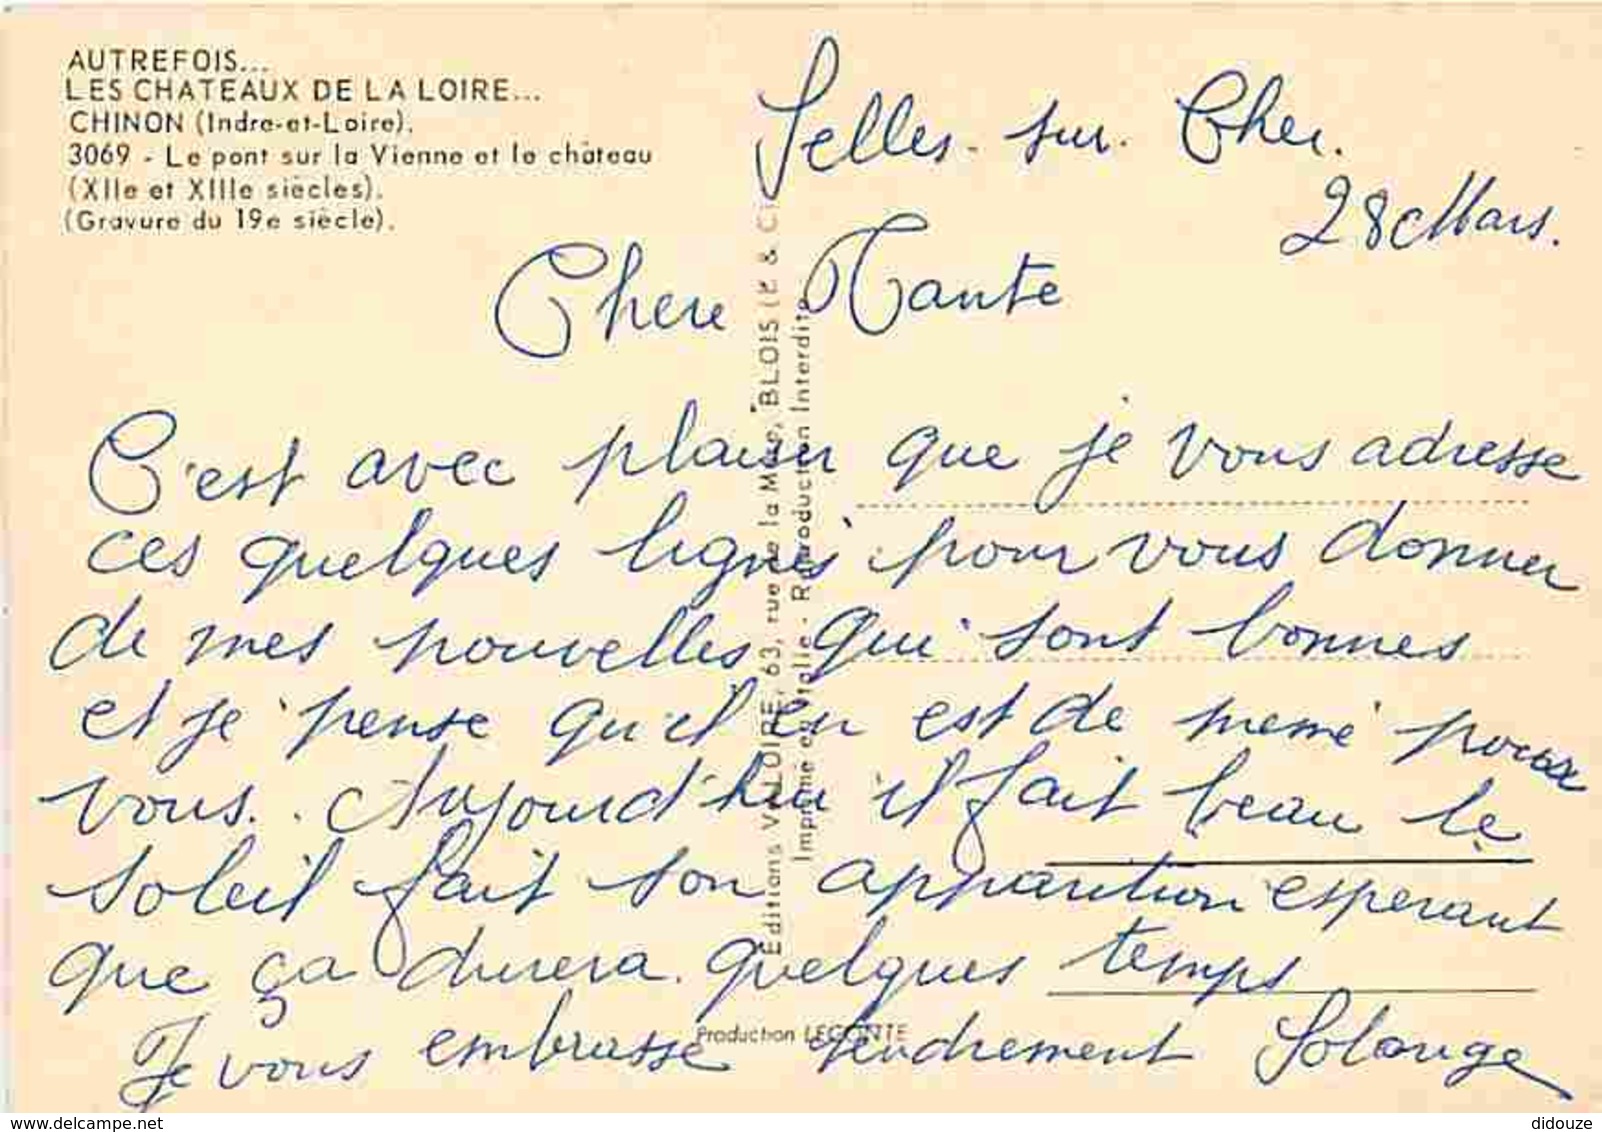 AUTREFOIS...
LES CHATEAUX DE LA LOIRE...
CHINON (Indre-et-Loire).
3069 - Le pont sur la Vienne et le château
(XIIe et XIIIe siècles).
(Gravure du 19e siècle).
Selles-sur-Cher.
28 Mars.
Chere Tante
C'est avec plaisir que je vous adresse
ces quelques lignes pour vous donner
de mes nouvelles qui sont bonnes
et je pense qu'il en est de meme pour
vous. Aujourd'hui il fait beau le
soleil fait son apparition esperant
que ça durera quelques temps
Je vous embrasse tendrement Solange
Editions VALOIRE, 63, rue de la Mare, BLOIS
Imprimé en Italie - Reproduction Interdite
Production LECONTE
www.delcampe.net
didouze